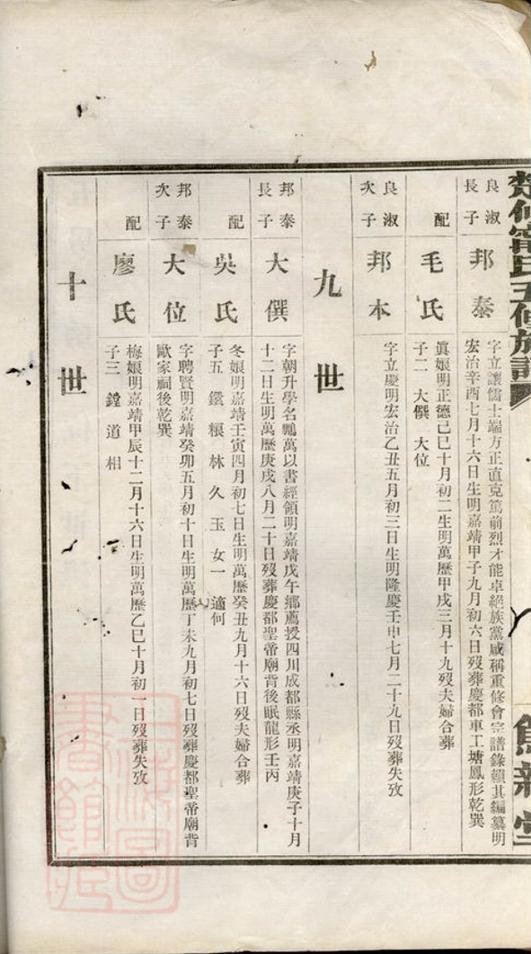 楚何甯氏五修族譜
良淑
長子
邦泰
字立讓儒士端方正直克篤前烈才能卓絕族黨咸稱重修會宗譜錄賴其編纂明
宏治辛酉七月十六日生明嘉靖甲子九月初六日歿葬慶都車工塘鳳形乾巽
配
毛氏
眞娘明正德己巳十月初二生明萬歷甲戌三月十九歿夫婦合葬
子二 大僎 大位
良淑
次子
邦本
字立慶明宏治乙丑五月初三日生明隆慶壬申七月二十九日歿葬失攷
九世
邦泰
長子
大僎
字朝升學名鵬萬以書經領明嘉靖戊午鄉薦授四川成都縣丞明嘉靖庚子十月
十二日生明萬歷庚戌八月二十日歿葬慶都聖帝廟背後眠龍形壬丙
配
吳氏
冬娘明嘉靖壬寅四月初七日生明萬歷癸丑九月十六日歿夫婦合葬
子五 鐵 根 林 久 玉 女一 適何
邦泰
次子
大位
字聘賢明嘉靖癸卯五月初十日生明萬歷丁未九月初七日歿葬慶都聖帝廟背
歐家祠後乾巽
配
廖氏
梅娘明嘉靖甲辰十二月十六日生明萬歷乙巳十月初一日歿葬失攷
子三 鏜 道 相
十世